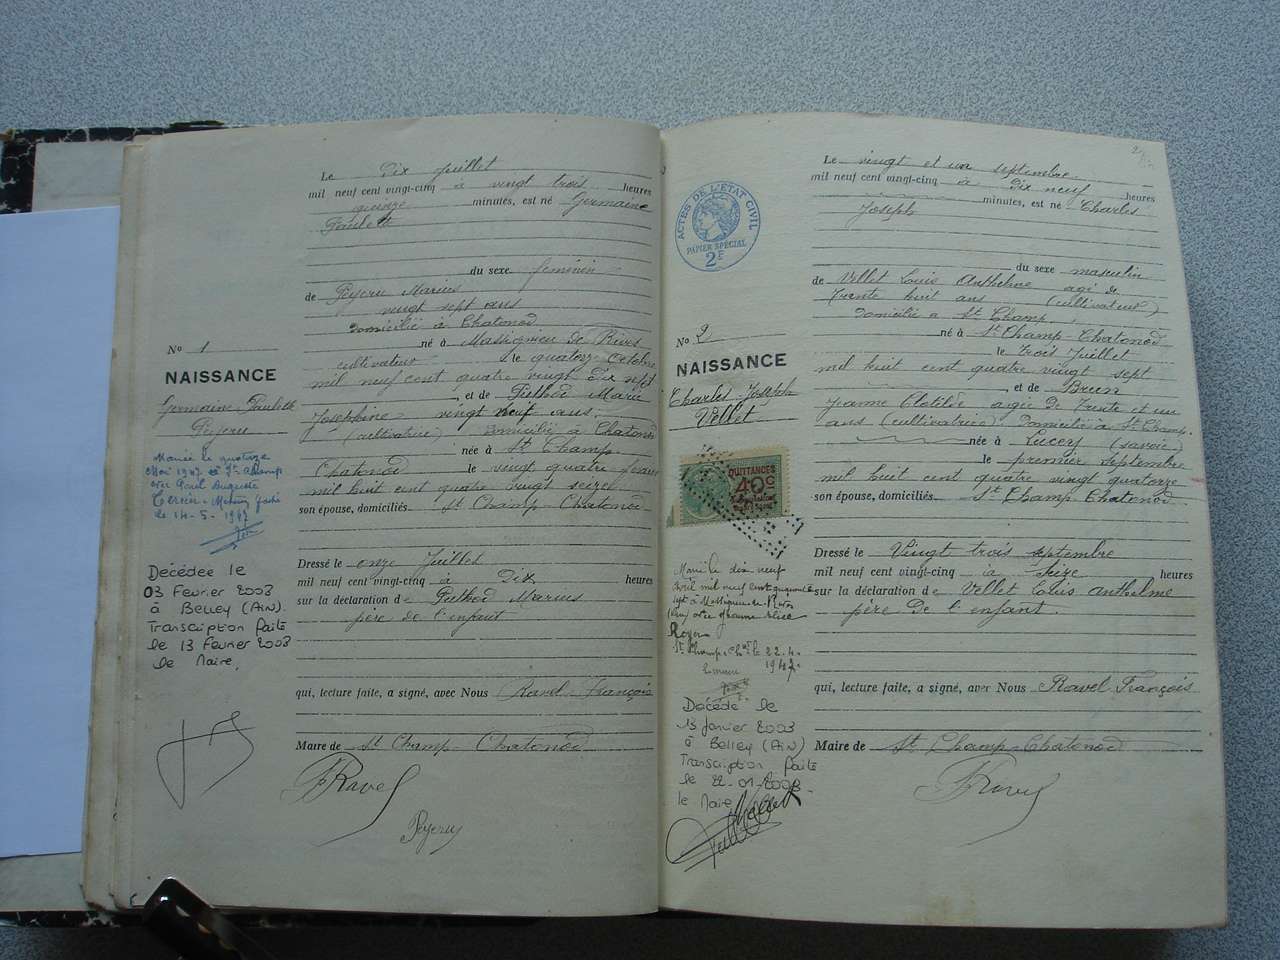 Le Dix juillet
mil neuf cent vingt-cinq à vingt trois heures
quinze minutes, est né Germaine
Paulette
du sexe féminin
de Peyeru Marius
vingt sept ans
Domicilié à Chatonod
né à Massignieu de Rives
cultivateur le quatorze Octobre
mil neuf cent quatre vingt dix sept
et de Puthod Marie
Josephine vingt neuf ans
(cultivatrice) Domicilié à Chatonod
née à St Champ
Chatonod le vingt quatre
mil huit cent quatre vingt seize
son épouse, domiciliés St Champ Chatonod
Dressé le onze Juillet
mil neuf cent vingt-cinq à Dix heures
sur la déclaration de Puthod Marius
père de l'enfant
qui, lecture faite, a signé, avec Nous Ravel François
Maire de St Champ-Chatonod
Ravel
Peyeru
No 1
NAISSANCE
Germaine Paulette
Peyeru
Mariée le quatorze
Mai 1947 à St Champ
avec Paul Auguste
le 14-5-1947
Décédée le
03 Février 2003
à Belley (Ain).
Transcription faite
le 13 Février 2003
le Maire,
2
ACTES DE L'ETAT CIVIL
PAPIER SPECIAL
2F
Le vingt et un septembre
mil neuf cent vingt-cinq à Dix neuf heures
minutes, est né Charles
Joseph
du sexe masculin
de Vellet Louis Anthelme agé de
trente huit ans (cultivateur)
Domicilié à St Champ
né à St Champ-Chatonod
le trois Juillet
mil huit cent quatre vingt sept
et de Brun
Jeanne Clotilde agée de trente et un
ans (cultivatrice) Domicilié à St Champ.
née à Lucey (savoie)
le premier septembre
mil huit cent quatre vingt quatorze
son épouse, domiciliés St Champ Chatonod
Dressé le Vingt trois septembre
mil neuf cent vingt-cinq à seize heures
sur la déclaration de Vellet Louis anthelme
père De l'enfant.
qui, lecture faite, a signé, avec Nous Ravel François
Maire de St Champ-Chatonod
Ravel
No 2
NAISSANCE
Charles Joseph
Vellet
QUITTANCES
40c
Marié le dix neuf
avril mil neuf cent quarante
sept à Massignieu-de-Rives
(Ain) avec Jeanne Elise
Royer
St Champ-Chat le 22.4.
1947
Décédé le
13 janvier 2003
à Belley (Ain)
Transcription faite
le 22-01-2003
le Maire